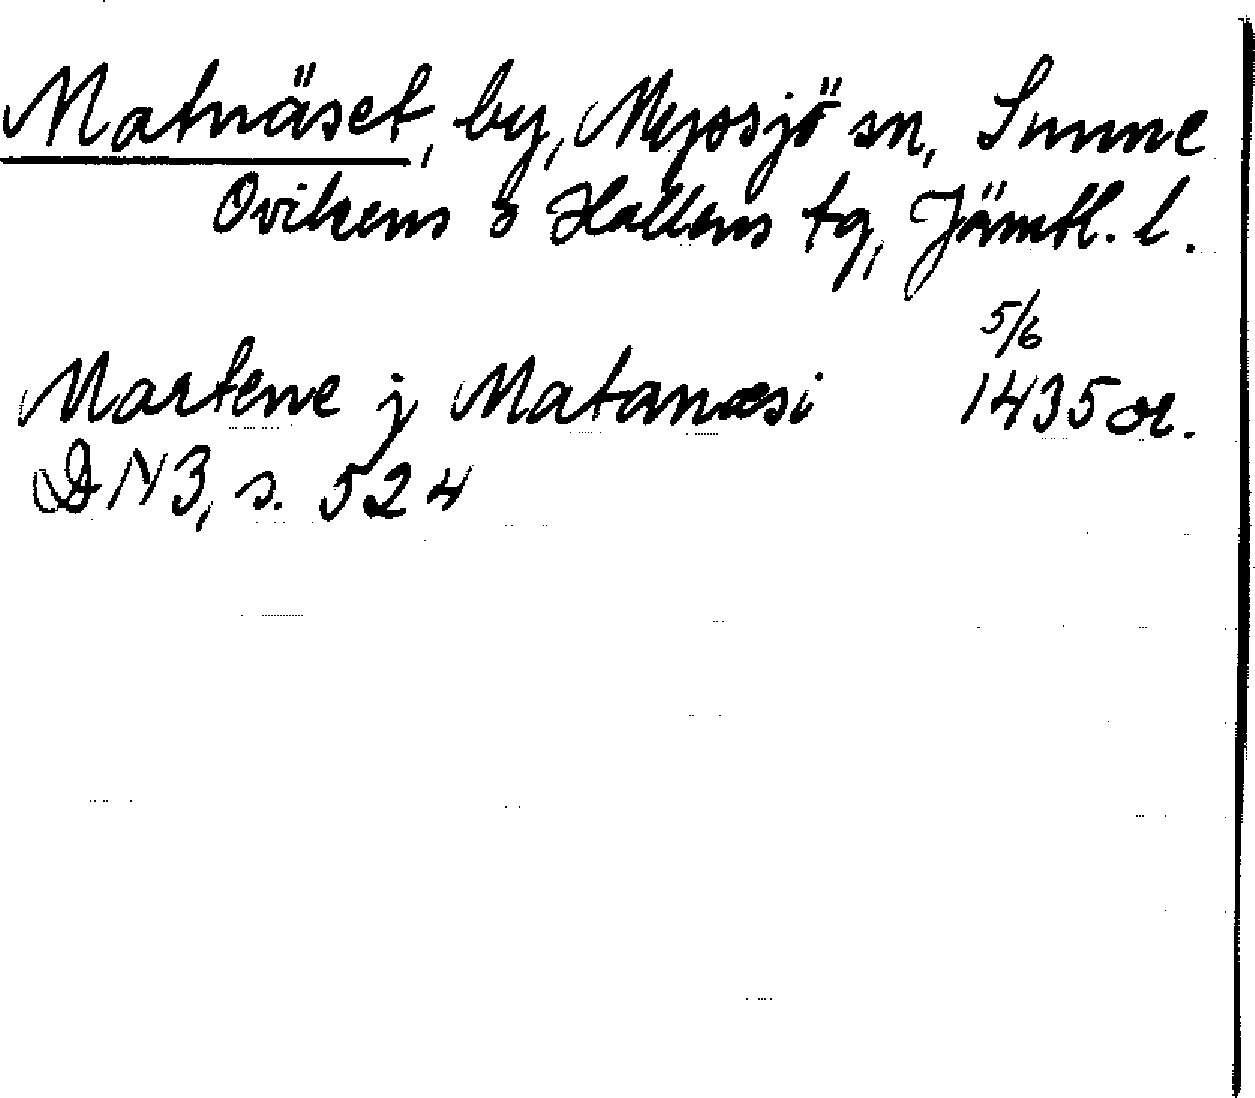 Matnäset, by, Myssjö sn, Sunne
Ovikens o Hallens tg, Jämtl. l.
5/6
Martene j Matanæsi 1435 or.
DN3, s. 524